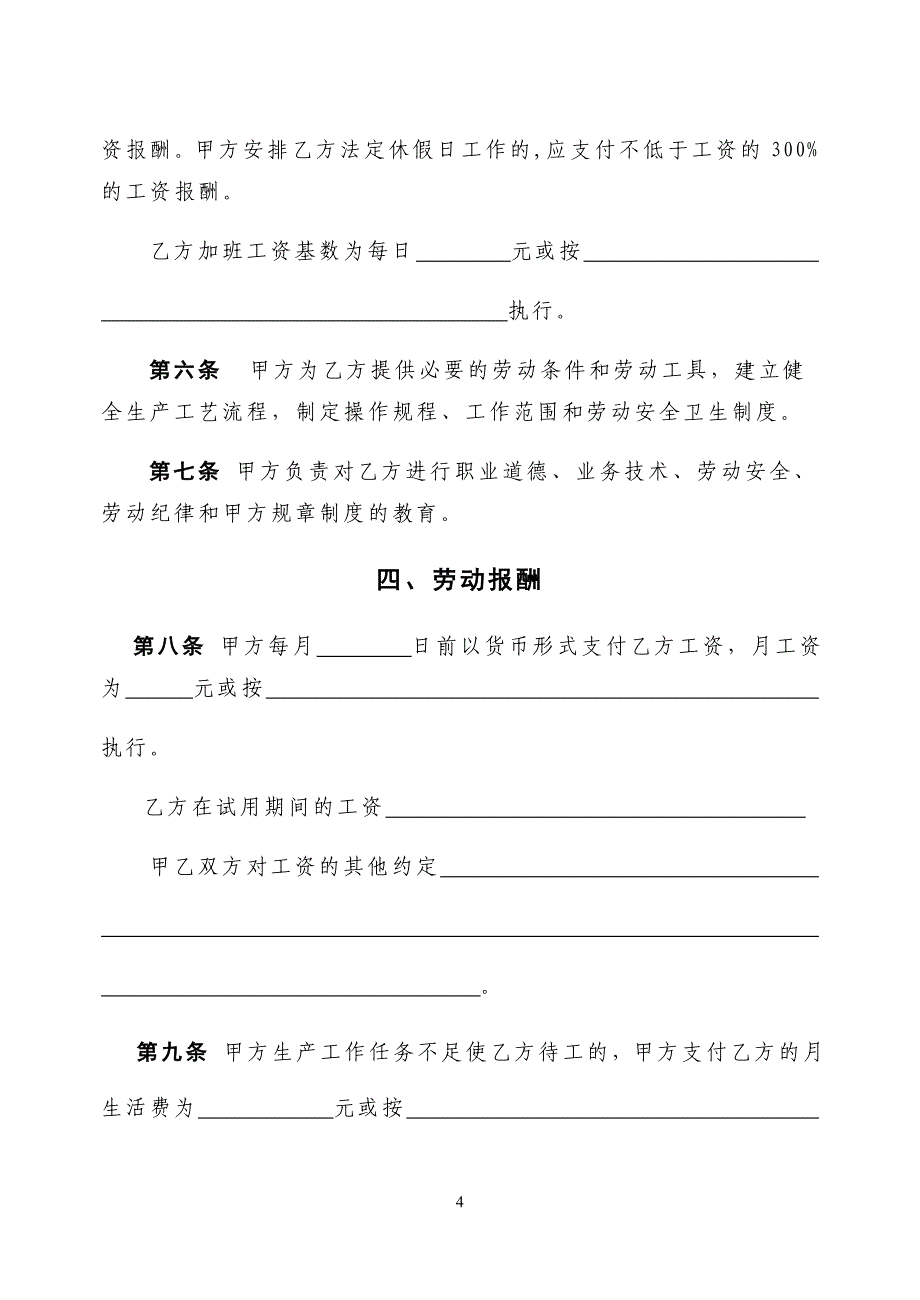 资报酬。甲方安排乙方法定休假日工作的,应支付不低于工资的 300%
的工资报酬。
乙方加班工资基数为每日________元或按____________________
__________________________________执行。
第六条 甲方为乙方提供必要的劳动条件和劳动工具，建立健
全生产工艺流程，制定操作规程、工作范围和劳动安全卫生制度。
第七条 甲方负责对乙方进行职业道德、业务技术、劳动安全、
劳动纪律和甲方规章制度的教育。
四、劳动报酬
第八条 甲方每月________日前以货币形式支付乙方工资，月工资
为______元或按______________________________________________
执行。
乙方在试用期间的工资___________________________________
甲乙双方对工资的其他约定________________________________
____________________________________________________________
________________________________。
第九条 甲方生产工作任务不足使乙方待工的，甲方支付乙方的月
生活费为____________元或按___________________________________
4